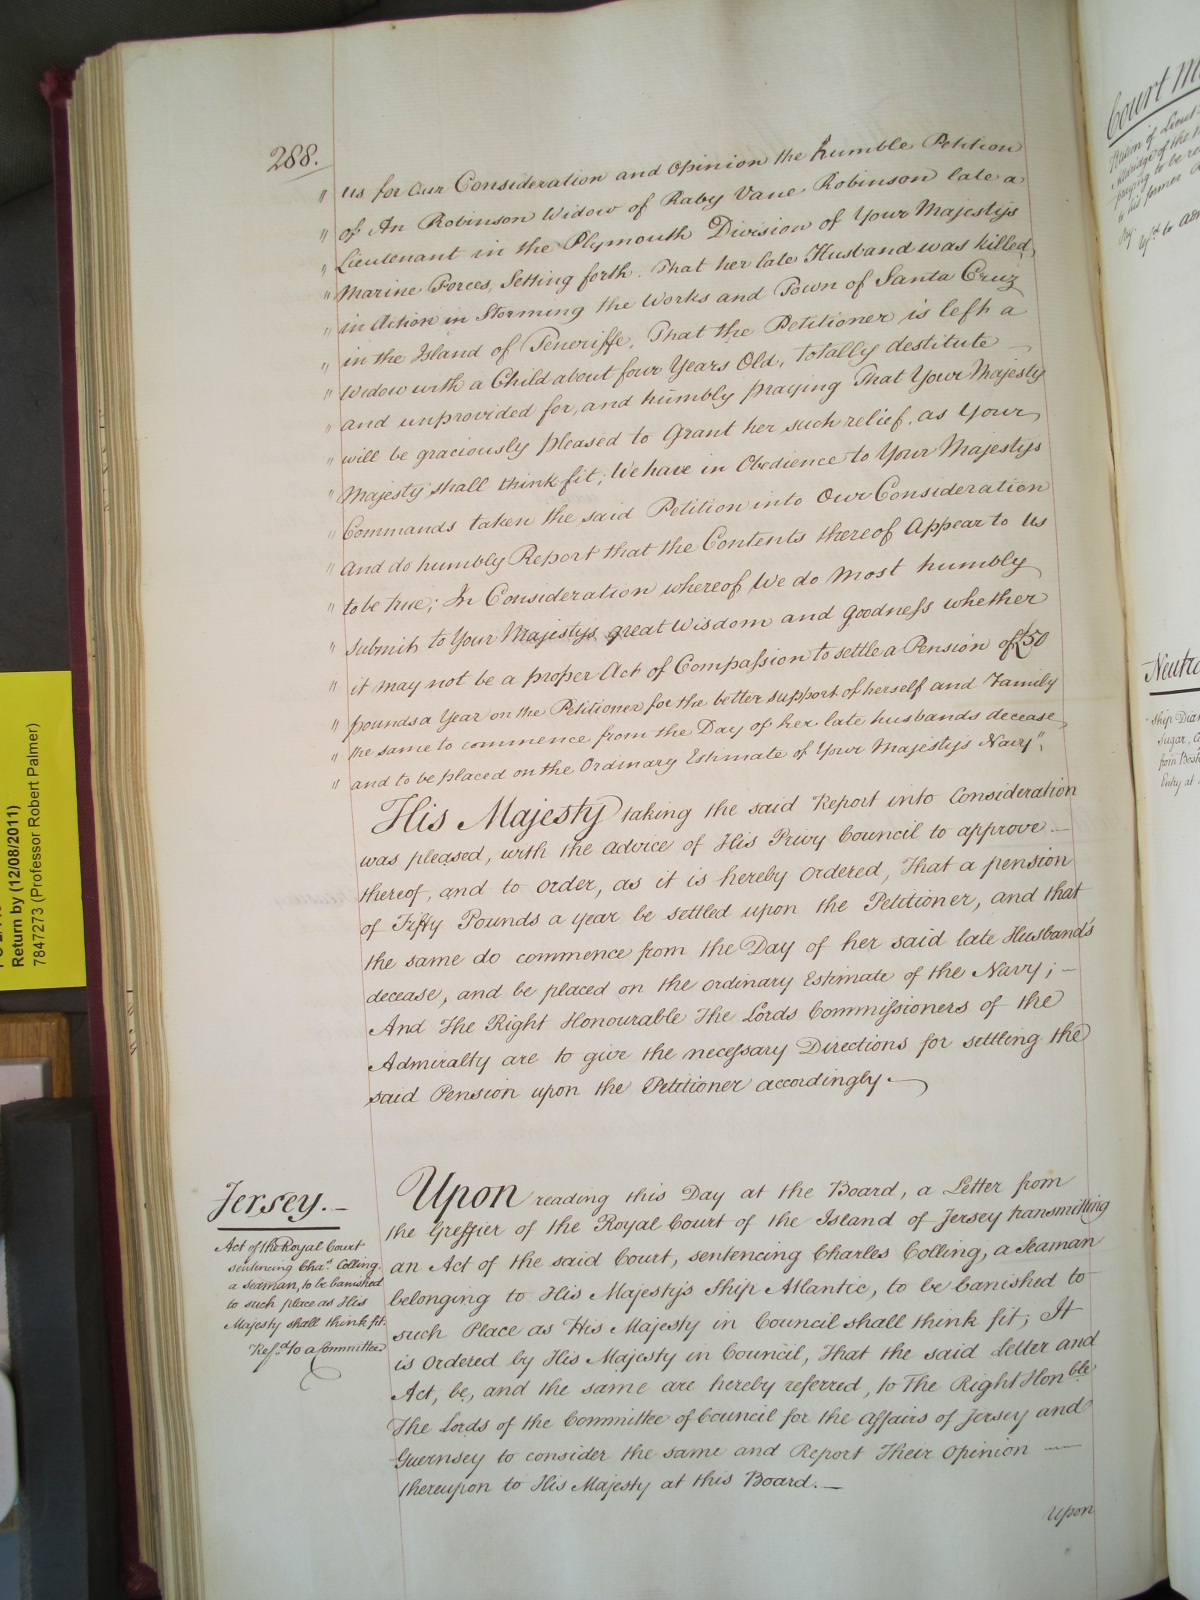 288.
" us for Our Consideration and Opinion the humble Petition
" of An Robinson Widow of Raby Vane Robinson late a
" Lieutenant in the Plymouth Division of Your Majestys
" Marine Forces, Setting forth. That her late Husband was killed
" in Action in Storming the Works and Town of Santa Cruz
" in the Island of Teneriffe, That the Petitioner is left a
" Widow with a Child about four Years Old, totally destitute
" and unprovided for, and humbly praying That Your Majesty
" will be graciously pleased to Grant her such relief, as Your
" Majesty shall think fit; We have in Obedience to Your Majestys
" Commands taken the said Petition into Our Consideration
" and do humbly Report that the Contents thereof Appear to us
" to be true; In Consideration whereof We do most humbly
" submit to Your Majestys great Wisdom and Goodness whether
" it may not be a proper Act of Compassion to settle a Pension of £50
" pounds a Year on the Petitioner for the better support of herself and Family
" the same to commence from the Day of her late husbands decease
" and to be placed on the Ordinary Estimate of Your Majesty's Navy".
His Majesty taking the said Report into Consideration
was pleased, with the advice of His Privy Council to approve
thereof, and to order, as it is hereby Ordered, That a pension
of Fifty Pounds a year be settled upon the Petitioner, and that
the same do commence from the Day of her said late Husband's
decease, and be placed on the ordinary Estimate of the Navy; —
And The Right Honourable The Lords Commissioners of the
Admiralty are to give the necessary Directions for settling the
said Pension upon the Petitioner accordingly.
Jersey. —
Act of the Royal Court
sentencing Chas. Colling,
a seaman, to be banished
to such place as His
Majesty shall think fit.
Ref.d to a Committee
Upon reading this Day at the Board, a Letter from
the Greffier of the Royal Court of the Island of Jersey transmitting
an Act of the said Court, sentencing Charles Colling, a Seaman
belonging to His Majesty's Ship Atlantic, to be banished to
such Place as His Majesty in Council shall think fit; It
is Ordered by His Majesty in Council, That the said Letter and
Act, be, and the same are hereby referred, to The Right Honble
The Lords of the Committee of Council for the Affairs of Jersey and
Guernsey to consider the same and Report Their Opinion —
thereupon to His Majesty at this Board. —
Upon
Return by (12/08/2011)
7847273 (Professor Robert Palmer)
Court
Neutra
Ship
Sugar,
Entry at